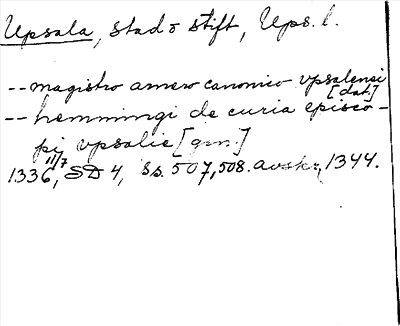 Upsala, stad o stift, Ups. l.
-- magistro amero canonico vpsalensi
[dat.]
-- hemmingi de curia episco-
pij vpsalie [gen.]
1336 11/7, SD 4, ss. 507, 508. avskr. 1344.